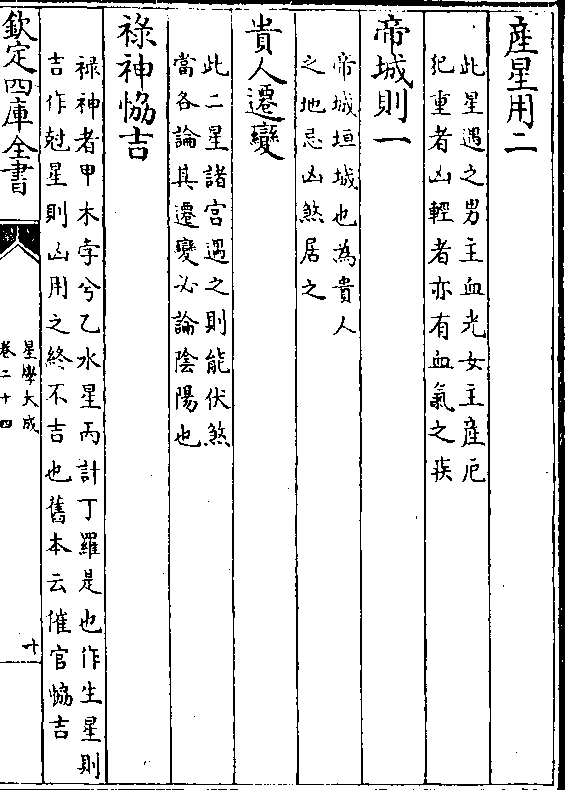 産星用二
此星遇之男主血光女主産厄
犯重者凶輕者亦有血氣之疾
帝城則一
帝城垣城也為貴人
之地忌凶煞居之
貴人遷變
此二星諸宫遇之則能伏煞
當各論其遷變必論陰陽也
祿神恊吉
祿神者甲木孛兮乙水星丙計丁羅是也作生星則
吉作尅星則凶用之終不吉也舊本云催官恊吉
欽定四庫全書
星學大成
卷二十四
十